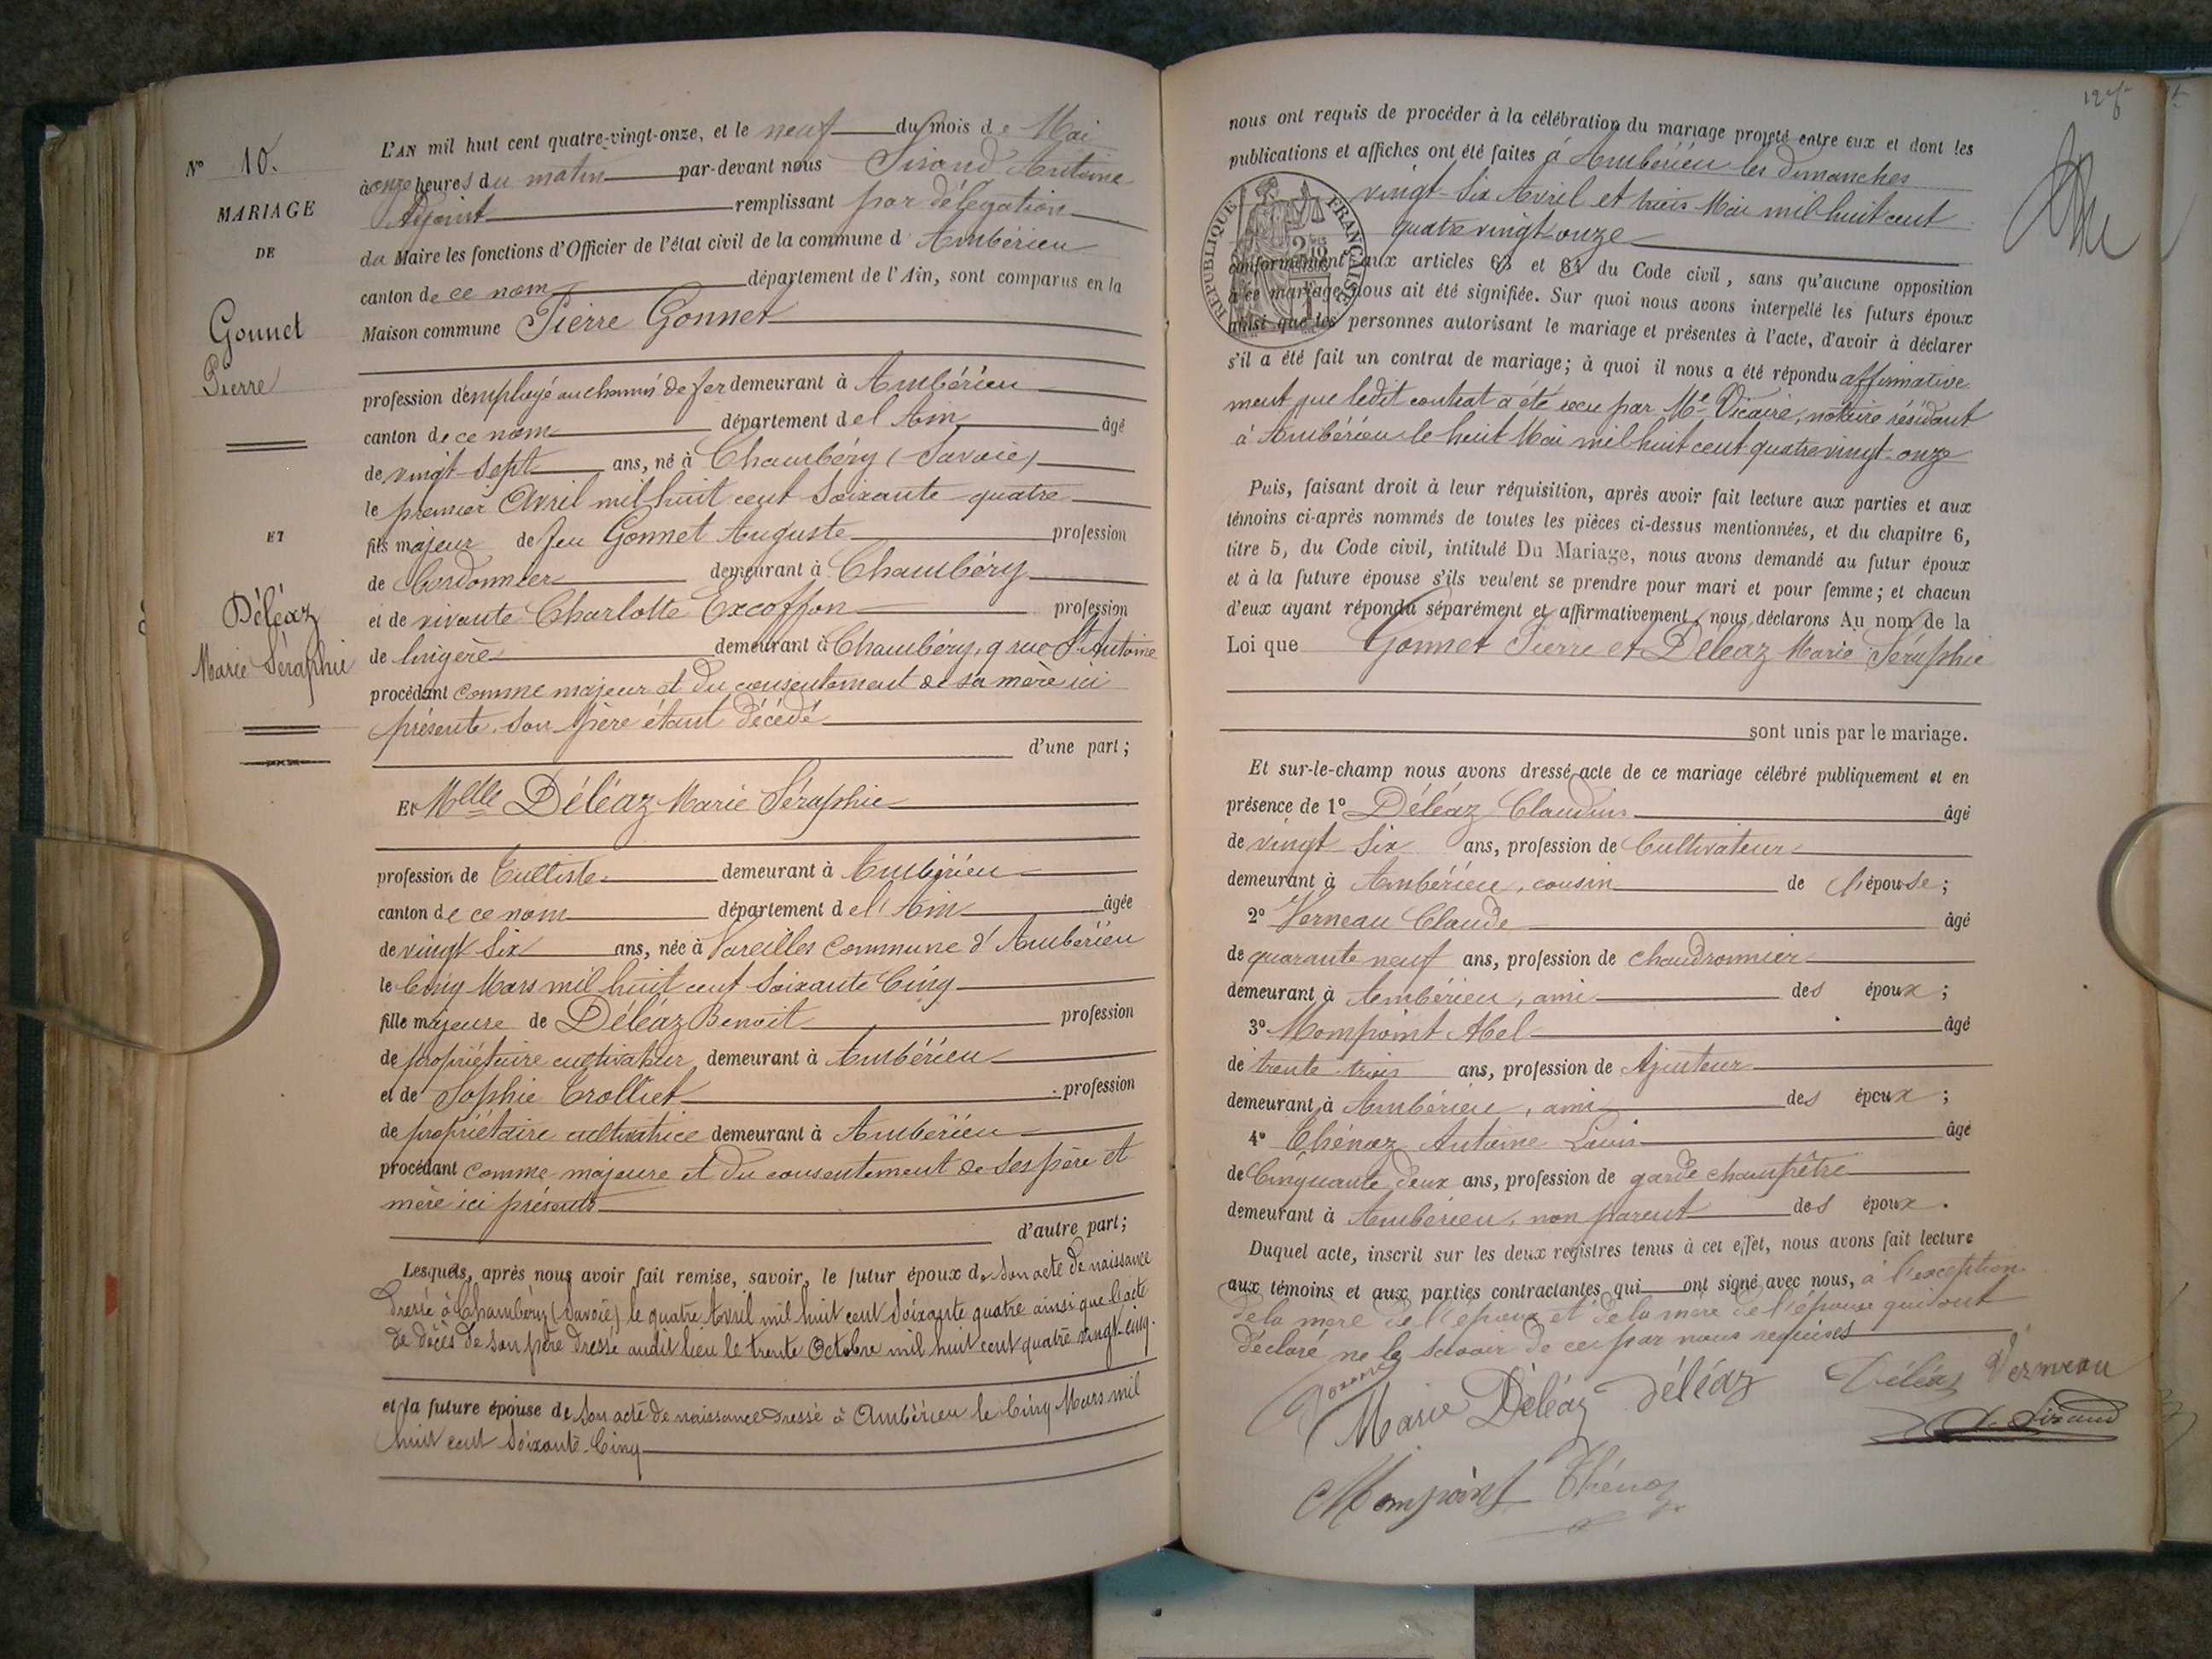 N° 10.
MARIAGE
DE
Gonnet
Pierre
ET
Déléaz
Marie Séraphie
L'AN mil huit cent quatre-vingt-onze, et le neuf du mois de Mai
à onze heures du matin par-devant nous Sirand Antoine
Adjoint remplissant par délégation
du Maire les fonctions d'Officier de l'état civil de la commune d'Ambérieu
canton de ce nom département de l'Ain, sont comparus en la
Maison commune Pierre Gonnet
profession d'employé au chemin de fer demeurant à Ambérieu
canton de ce nom département de l'Ain âgé
de vingt-sept ans, né à Chambéry (Savoie)
le premier Avril mil huit cent soixante-quatre
fils majeur de feu Gonnet Auguste profession
de Cordonnier demeurant à Chambéry
et de vivante Charlotte Excoffon profession
de lingère demeurant à Chambéry, 9 rue St Antoine
procédant comme majeur et du consentement de sa mère ici
présente, son père étant décédé
d'une part;
Et Melle Déléaz Marie Séraphie
profession de Tulliste demeurant à Ambérieu
canton de ce nom département de l'Ain âgée
de vingt-six ans, née à Vareilles commune d'Ambérieu
le Cinq Mars mil huit cent soixante Cinq
fille majeure de Déléaz Benoit profession
de propriétaire cultivateur demeurant à Ambérieu
et de Sophie Crolliet profession
de propriétaire cultivatrice demeurant à Ambérieu
procédant comme majeure et du consentement de ses père et
mère ici présents
d'autre part;
Lesquels, après nous avoir fait remise, savoir, le futur époux de son acte de naissance
dressé à Chambéry (Savoie) le quatre Avril mil huit cent soixante quatre ainsi que l'acte
de décès de son père dressé audit lieu le trente Octobre mil huit cent quatre vingt-cinq.
et la future épouse de son acte de naissance dressé à Ambérieu le Cinq Mars mil
huit cent soixante-Cinq
nous ont requis de procéder à la célébration du mariage projeté entre eux et dont les
publications et affiches ont été faites à Ambérieu les dimanches
vingt-six Avril et trois Mai mil huit cent
quatre vingt onze
REPUBLIQUE FRANÇAISE
conformément aux articles 63 et 64 du Code civil, sans qu'aucune opposition
à ce mariage nous ait été signifiée. Sur quoi nous avons interpellé les futurs époux
ainsi que les personnes autorisant le mariage et présentes à l'acte, d'avoir à déclarer
s'il a été fait un contrat de mariage; à quoi il nous a été répondu affirmative
ment que ledit contrat a été reçu par Me Vicaire, notaire résidant
à Ambérieu le huit Mai mil huit cent quatre vingt-onze
Puis, faisant droit à leur réquisition, après avoir fait lecture aux parties et aux
témoins ci-après nommés de toutes les pièces ci-dessus mentionnées, et du chapitre 6,
titre 5, du Code civil, intitulé Du Mariage, nous avons demandé au futur époux
et à la future épouse s'ils veulent se prendre pour mari et pour femme; et chacun
d'eux ayant répondu séparément et affirmativement, nous déclarons Au nom de la
Loi que Gonnet Pierre et Déléaz Marie Séraphie
sont unis par le mariage.
Et sur-le-champ nous avons dressé acte de ce mariage célébré publiquement et en
présence de 1° Déléaz Claudius âgé
de vingt six ans, profession de Cultivateur
demeurant à Ambérieu, cousin de l'épouse;
2° Verneau Claude âgé
de quarante neuf ans, profession de chaudronnier
demeurant à Ambérieu, ami des époux;
3° Mompoint Abel âgé
de trente-trois ans, profession de Ajusteur
demeurant à Ambérieu, ami des époux;
4° Chénoz Antoine Louis âgé
de Cinquante deux ans, profession de garde champêtre
demeurant à Ambérieu, non parent des époux.
Duquel acte, inscrit sur les deux registres tenus à cet effet, nous avons fait lecture
aux témoins et aux parties contractantes qui ont signé avec nous, à l'exception
de la mère de l'époux et de la mère de l'épouse qui ont
déclaré ne le savoir de ce par nous requises
Gonnet
Marie Déléaz Déléaz Déléaz Verneau
A. Sirand
Mompoint Chénoz